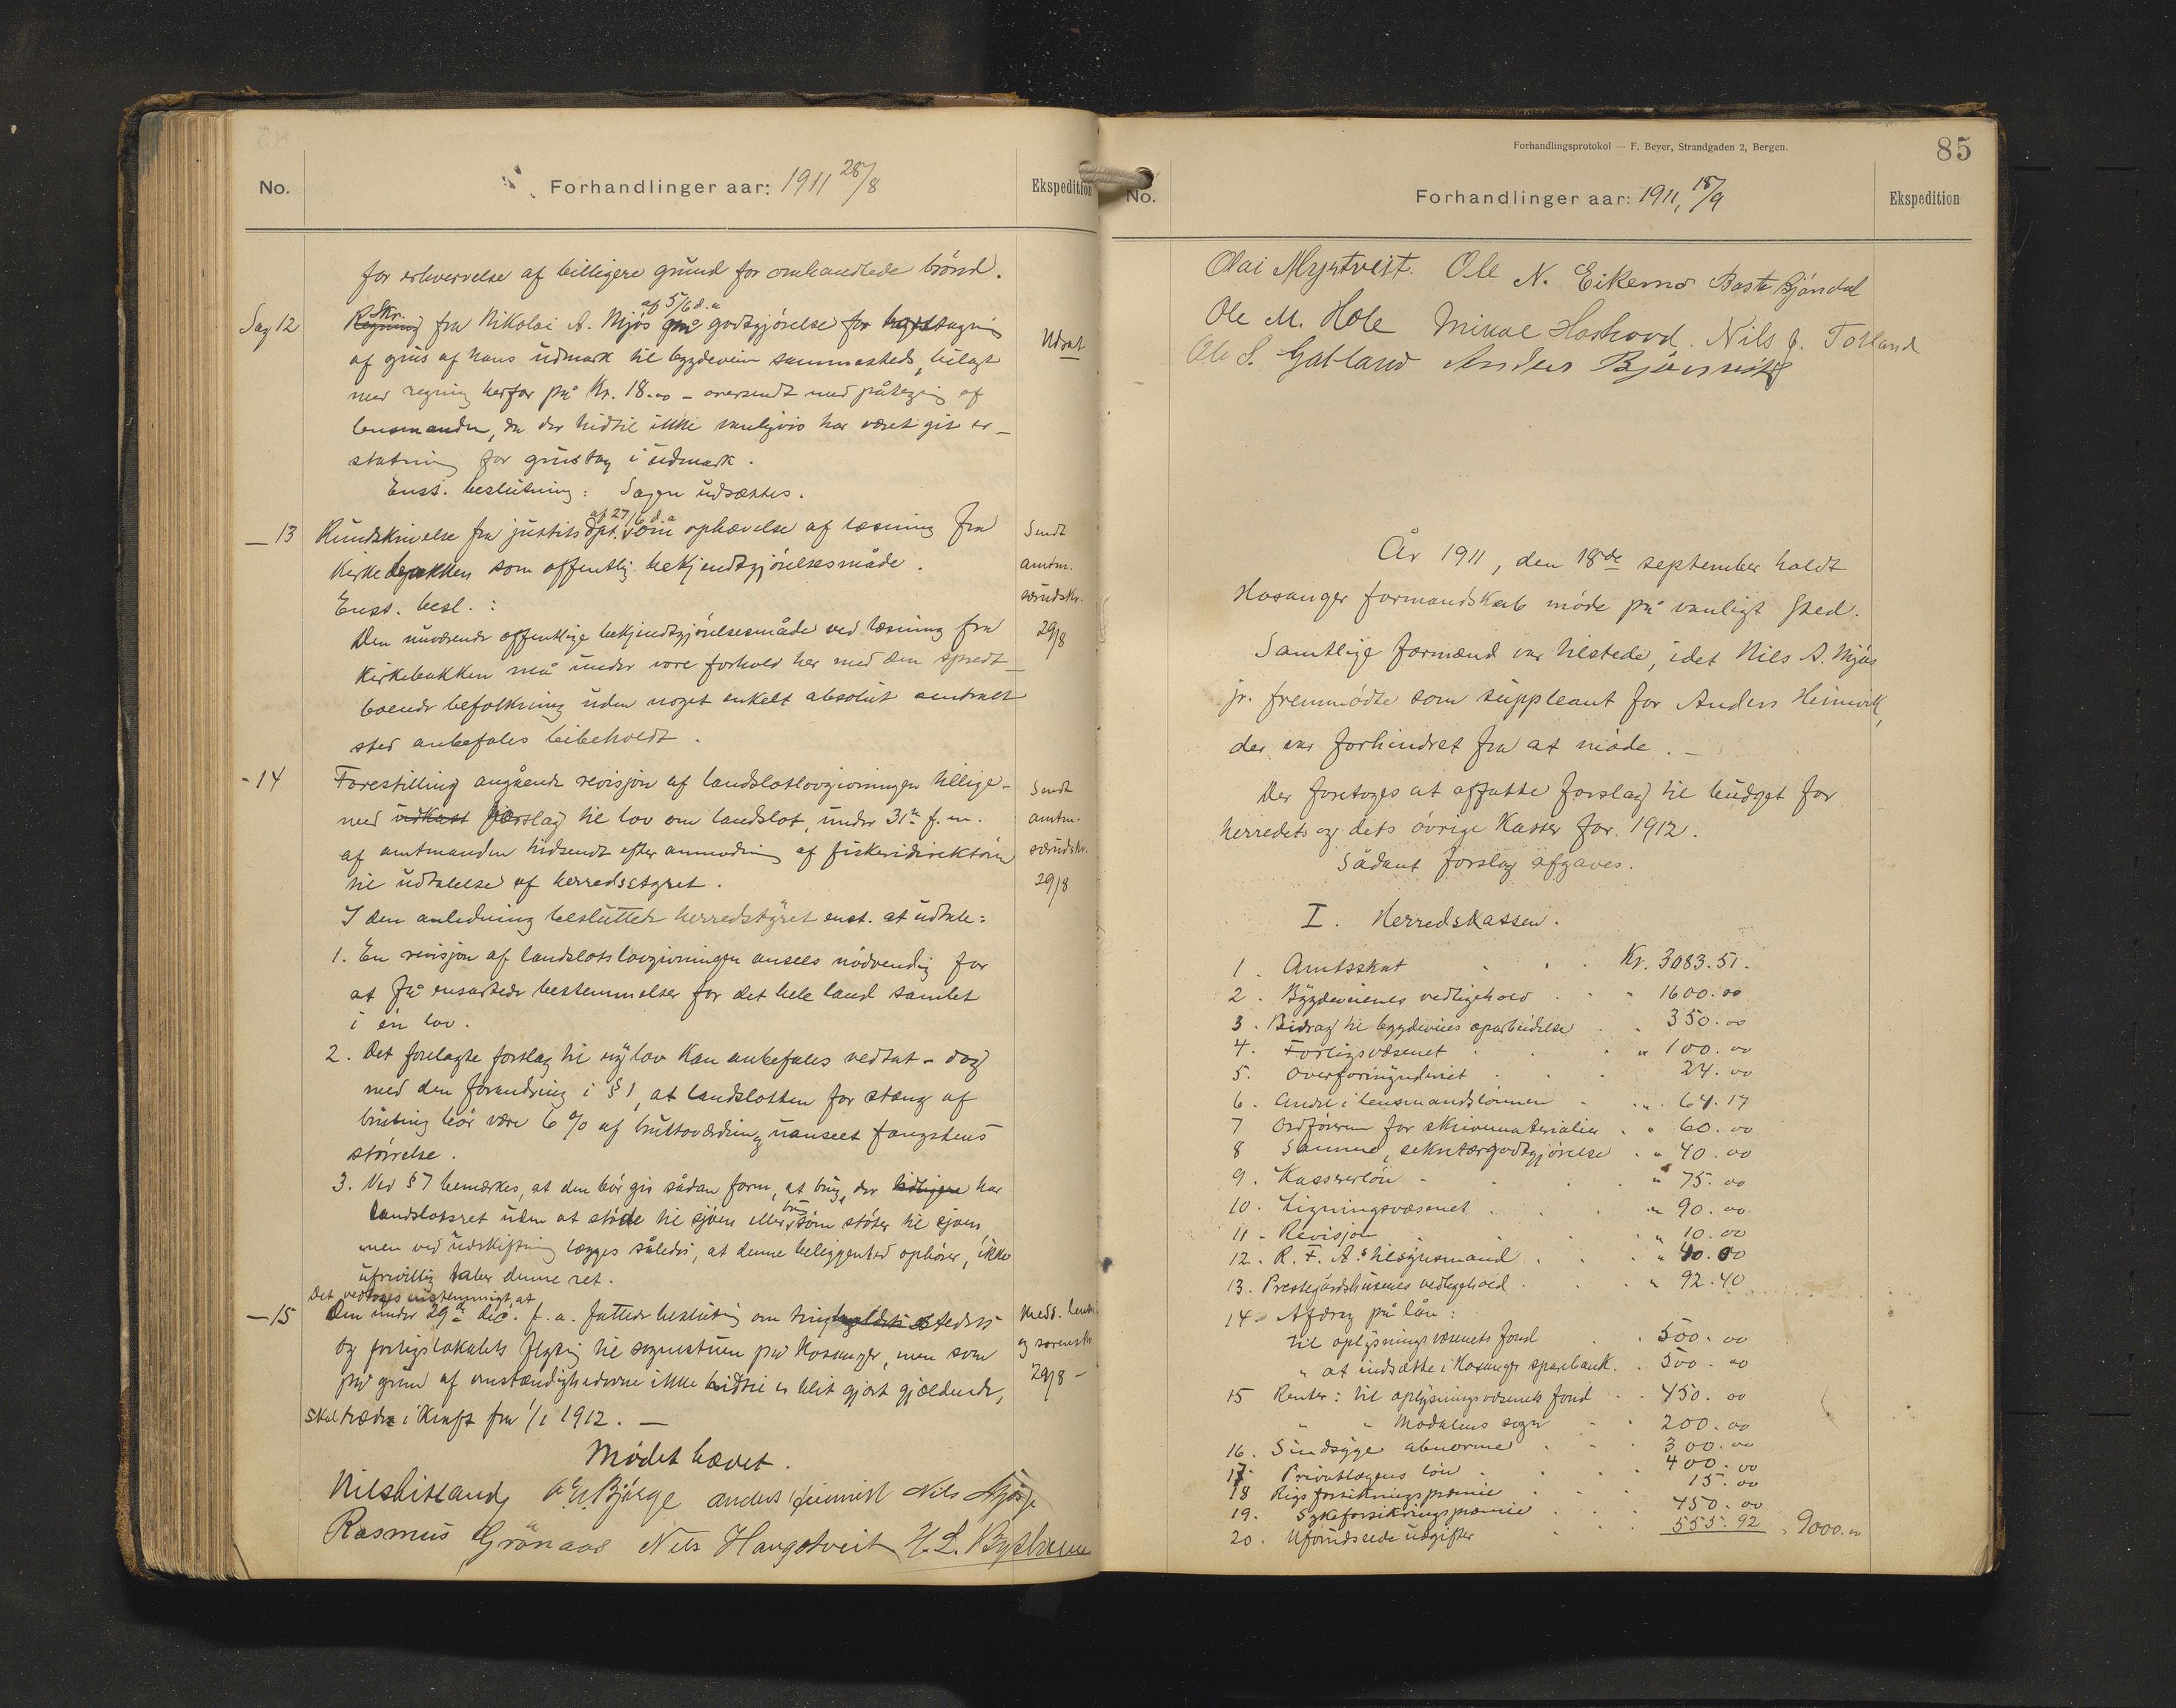 No. Forhandlinger aar: 1911 28/8 Ekspedition
for erhvervelse af billigere grund for omhandlede brönd.
Sag 12 Skr. af 5/6 d.a.
Regning fra Nikolai A. Mjös om godtgjörelse for
af grus af hans udmark til bygdeveien sammesteds, bilagt
med regning herfor på Kr. 18.00 - oversendt med påtegning af
lensmanden, da der hidtil ikke vanligvis har været git er-
statning for grustag i udmark.
Enst. beslutning: Sagen udsættes.
Udsat
- 13 Rundskrivelse fra justitsdpt. af 27/6 d.a. om ophævelse af læsning fra
kirkebakken som offentlig bekjendtgjörelsesmåde.
Enst. besl.:
Den nuværende offentlige bekjendtgjörelsesmåde ved læsning fra
kirkebakken må under vore forhold her med den spredt-
boende befolkning uden noget enkelt absolut sentralt
sted anbefales beibeholdt.
Sendt
amtm.
særudskr.
29/8
- 14 Forestilling angående revisjon af landslotlovgivningen tillige-
med udkast forslag til lov om landslot, under 31te f.m.
af amtmanden hidsendt efter anmodning af fiskeridirektören
til udtalelse af herredsstyret.
Sendt
amtm.
særudskr.
29/8
I den anledning besluttede herredstyret enst. at udtale:
1. En revisjon af landslotslovgivningen ansees nödvendig for
at få ensartede bestemmelser for det hele land samlet
i én lov.
2. Det forelagte forslag til ny lov kan anbefales vedtat - dog
med den forandring i § 1, at landslotten for stæng af
brisling bör være 6 % af bruttoværdien uanseet fangstens
störrelse.
3. Ved § 7 bemærkes, at den bör gis sådan form, at brug, der tidligere har
landslotsret uden at støde til sjöen eller brug som støter til sjöen,
men ved udskiftning lægges således, at denne beliggenhed ophører, ikke
ufrivillig taber denne ret.
Det vedtoges enstemmigt, at
- 15 Den under 29de dec. f.a. fattede beslutning om tingstedets
og forligslokalets flytning til sognestuen på Hosanger, men som
på grund af omstændighederne ikke hidtil er blit gjort gjældende,
skal træde i kraft fra 1/1 1912. -
Medd. lensm.
og sorenskr.
29/8 -
Mødet hævet.
Nils Litland Bjørge Anders Heimvik Nils Mjös jr
Rasmus Grönaas Nils Haugstveit
Forhandlingsprotokol — F. Beyer, Strandgaden 2, Bergen.
85
No. Forhandlinger aar: 1911, 18/9 Ekspedition
Olai Myrtveit. Ole N. Eikemo Baste Bjöndal
Ole M. Hole Mikal Hoshovd. Nils J. Totland
Ole S. Gatland Anders Björnvik
År 1911, den 18de september holdt
Hosanger formandskab möde på vanligt sted.
Samtlige formænd var tilstede, idet Nils A. Mjös
jr. fremmödte som suppleant for Anders Heimvik,
der var forhindret fra at möde. -
Der foretoges at affatte forslag til budget for
herredets og dets övrige kasser for 1912.
Sådant forslag afgaves.
I. Herredskassen.
1. Amtsskat Kr. 3083.51.
2. Bygdeveienes vedligehold " 1600.00
3. Bidrag til bygdeveies oparbeidelse " 350.00
4. Forligsvæsenet " 100.00
5. Overformynderiet 24.00
6. Andel i lensmandslönnen " 64.17
7 Ordföreren for skrivematerialier " 60.00
8 Samme, sekretærgodtgjörelse " 40.00
9. Kassererlön " 75.00
10. Ligningsvæsenet " 90.00
11. Revisjon " 10.00
12. R. F. A.s tilsynsmand " 40.00
13. Prestegårdshusenes vedligehold " 92.40
14. Afdrag på lån:
til oplysningsvæsenets fond 500.00
" at indsætte i Hosanger sparebank 500.00
15 Renter: til oplysningsvæsenets fond 450.00
" " Modalens sogn 200.00
16. Sindsyge abnorme 300.00
17. Privatlægens lön 400.00
18 Rigsforsikringspræmie 15.00
19. Sykeforsikringspræmie 450.00
20. Uforudseede udgifter 555.92 " 9000.00